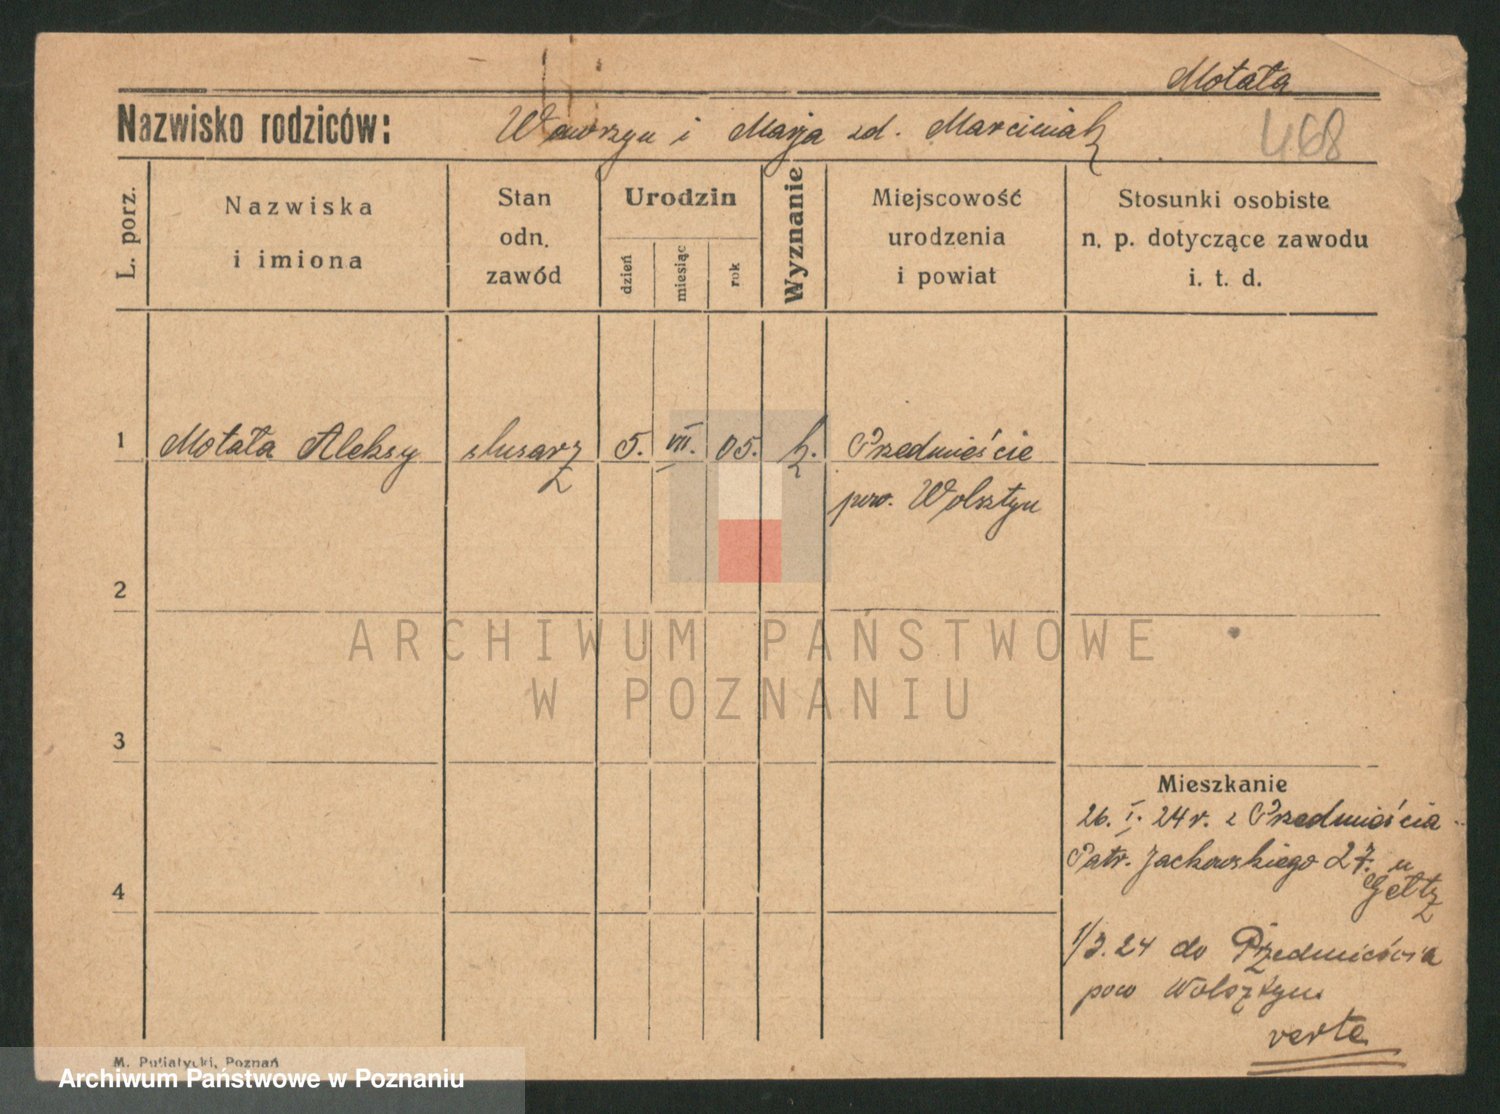 Motała
Nazwisko rodziców: Wawrzyn i Marja zd. Marciniak
468
L. porz.
Nazwiska
i imiona
Stan
odn.
zawód
Urodzin
dzień
miesiąc
rok
Wyznanie
Miejscowość
urodzenia
i powiat
Stosunki osobiste
n. p. dotyczące zawodu
i. t. d.
1 Motała Aleksy ślusarz 5. VII. 05. k. Przedmieście
pow. Wolsztyn
2
3
4
ARCHIWUM PAŃSTWOWE
W POZNANIU
Mieszkanie
26. I. 24 r. z Przedmieścia
Patr. Jackowskiego 27. u
1/3. 24 do Przedmieścia
pow Wolsztyn.
verte
M. Putiatycki, Poznań
Archiwum Państwowe w Poznaniu